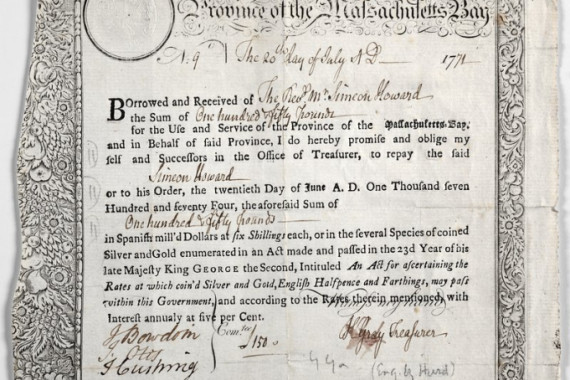 Province of the Massachusetts Bay
No: 9 The 20th day of July A D 1771
BOrrowed and Received of The Revd. Mr. Simeon Howard
the Sum of One hundred & fifty Pounds
for the Use and Service of the Province of the Massachusetts-Bay,
and in Behalf of said Province, I do hereby promise and oblige my
self and Successors in the Office of Treasurer, to repay the said
Simeon Howard
or to his Order, the twentieth Day of June A. D. One Thousand seven
Hundred and seventy Four, the aforesaid Sum of
One hundred & fifty Pounds
in Spanish mill'd Dollars at six Shillings each, or in the several Species of coined
Silver and Gold enumerated in an Act made and passed in the 23d Year of his
late Majesty King GEORGE the Second, Intituled An Act for ascertaining the
Rates at which coin'd Silver and Gold, English Halfpence and Farthings, may pass
within this Government, and according to the Rates therein mentioned, with
Interest annually at five per Cent.
J Bowdoin
Js Otis
T Cushing
Comtee
£150
H Gray Treasurer
(Eng. by Hurd)